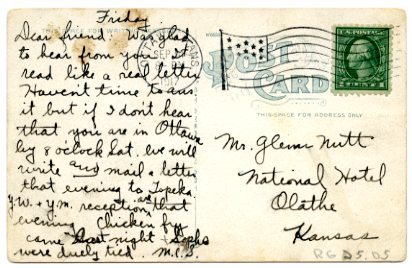 Friday
Dear friend. Was glad
to hear from you. It
read like a real letter
Haven't time to ans
it but if I don't hear
that you are in Ottawa
by 8 o'clock Sat. we will
write and mail a letter
that evening to Topeka.
y.w. + y.m. reception are that
evening. Chicken fry
came last night. Sophs
were duely tied. M.C.S.
SEP
POST CARD
THIS SPACE FOR ADDRESS ONLY
U.S. POSTAGE
Mr. Glenn Nutt
National Hotel
Olathe
Kansas
RG 25.05